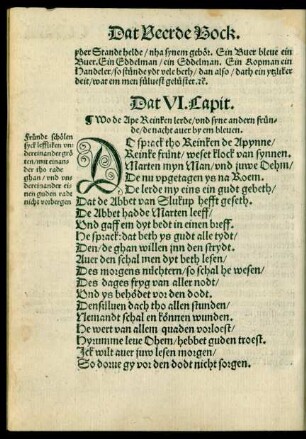 Dat Veerde Bock.
yder Stande helde / nha synem gebör. Ein Buer bleue ein
Buer. Ein Eddelman / ein Eddelman. Ein Kopman ein
Handeler / so stünde ydt vele beth / dan also / dath ein ytzliker
deit / wat em men sülvest gelüstet. ꝛc.
Dat VI. Capit.
¶ Wo de Ape Reinken lerde / vnd syne andern frün-
de / de nacht auer by em bleuen.
Fründe schölen
syck leffliken vn-
dereinander grö-
ten / mit einan-
der tho rade
ghan / vnd vn-
dereinander ei-
nen guden radt
nicht vorbergen
DO sprack tho Reinken de Apynne /
Reinke fründ / weset kloek van synnen.
Marten myn Man / vnd juwe Oehm /
De nu vpgetagen ys na Roem.
De lerde my eins ein gudt gebeth /
Dat de Abbet van Slukup hefft geseth.
De Abbet hadde Marten leeff /
Vnd gaff em dyt bedt in einen breff.
He sprack: dat beth ys gudt alle tydt /
Den / de ghan willen inn den strydt.
Auer den schal men dyt beth lesen /
Des morgens nüchtern / so schal he wesen /
Des dages fryg van aller nodt /
Vnd ys behödet vor den dodt.
Densüluen dach tho allen stunden /
Nemandt schal en können wunden.
He wert van allem quaden vorloest /
Hyrumme leue Ohem / hebbet guden troest.
Ick wilt auer juw lesen morgen /
So dorue gy vor den dodt nicht sorgen.